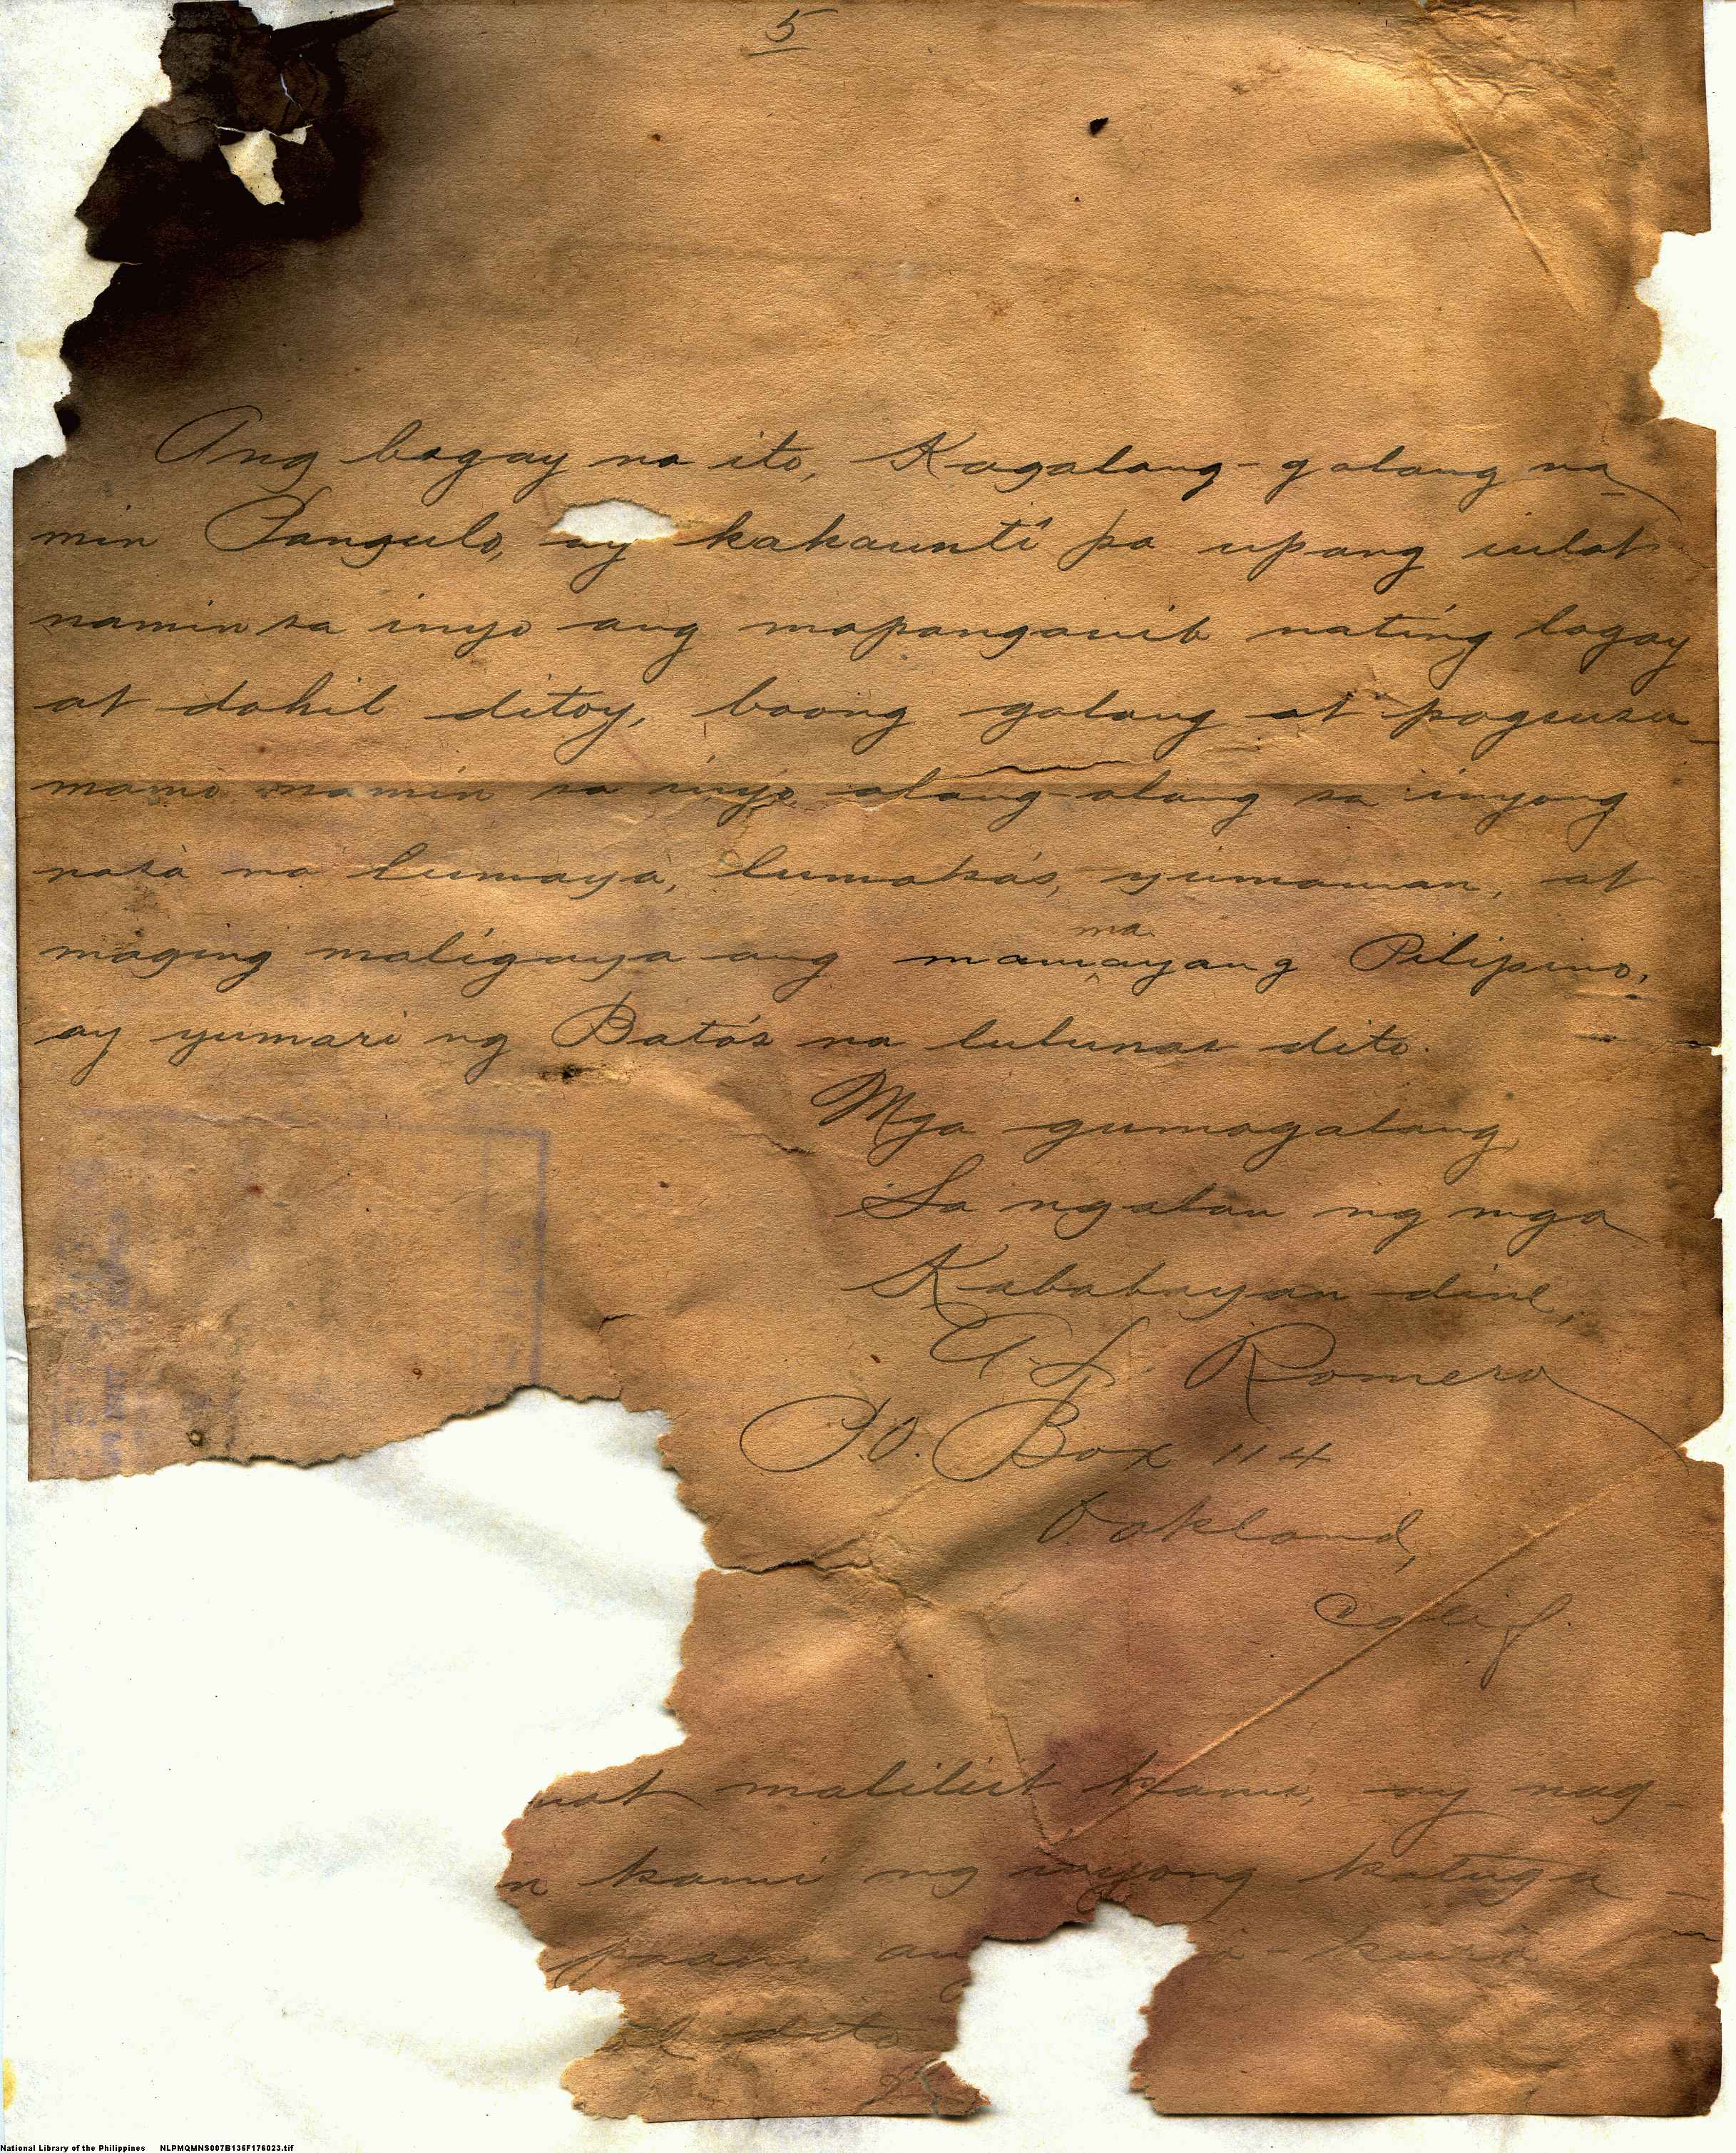 5
Ang bagay na ito, Kagalang-galang na-
min Pangulo, ay kakauntî pa upang iulat
namin sa inyo ang mapanganib nating lagay
at dahil ditoy, boong galang at pagsusu-
mamo namin sa inyo alang-alang sa inyong
nasà na lumaya, lumakás, yumaman, at
maging maligaya ang mamamayang Pilipino,
ay yumari ng Batás na lulunas dito.
Mga gumagalang
Sa ngalan ng mga
Kababayan dine,
A. L. Romero
P.O. Box 114
Oakland,
Calif.
maliliit kami, ay nag-
kami ng inyong katuga-
paano
dito
National Library of the Philippines NLPMQMNS007B136F176023.tif